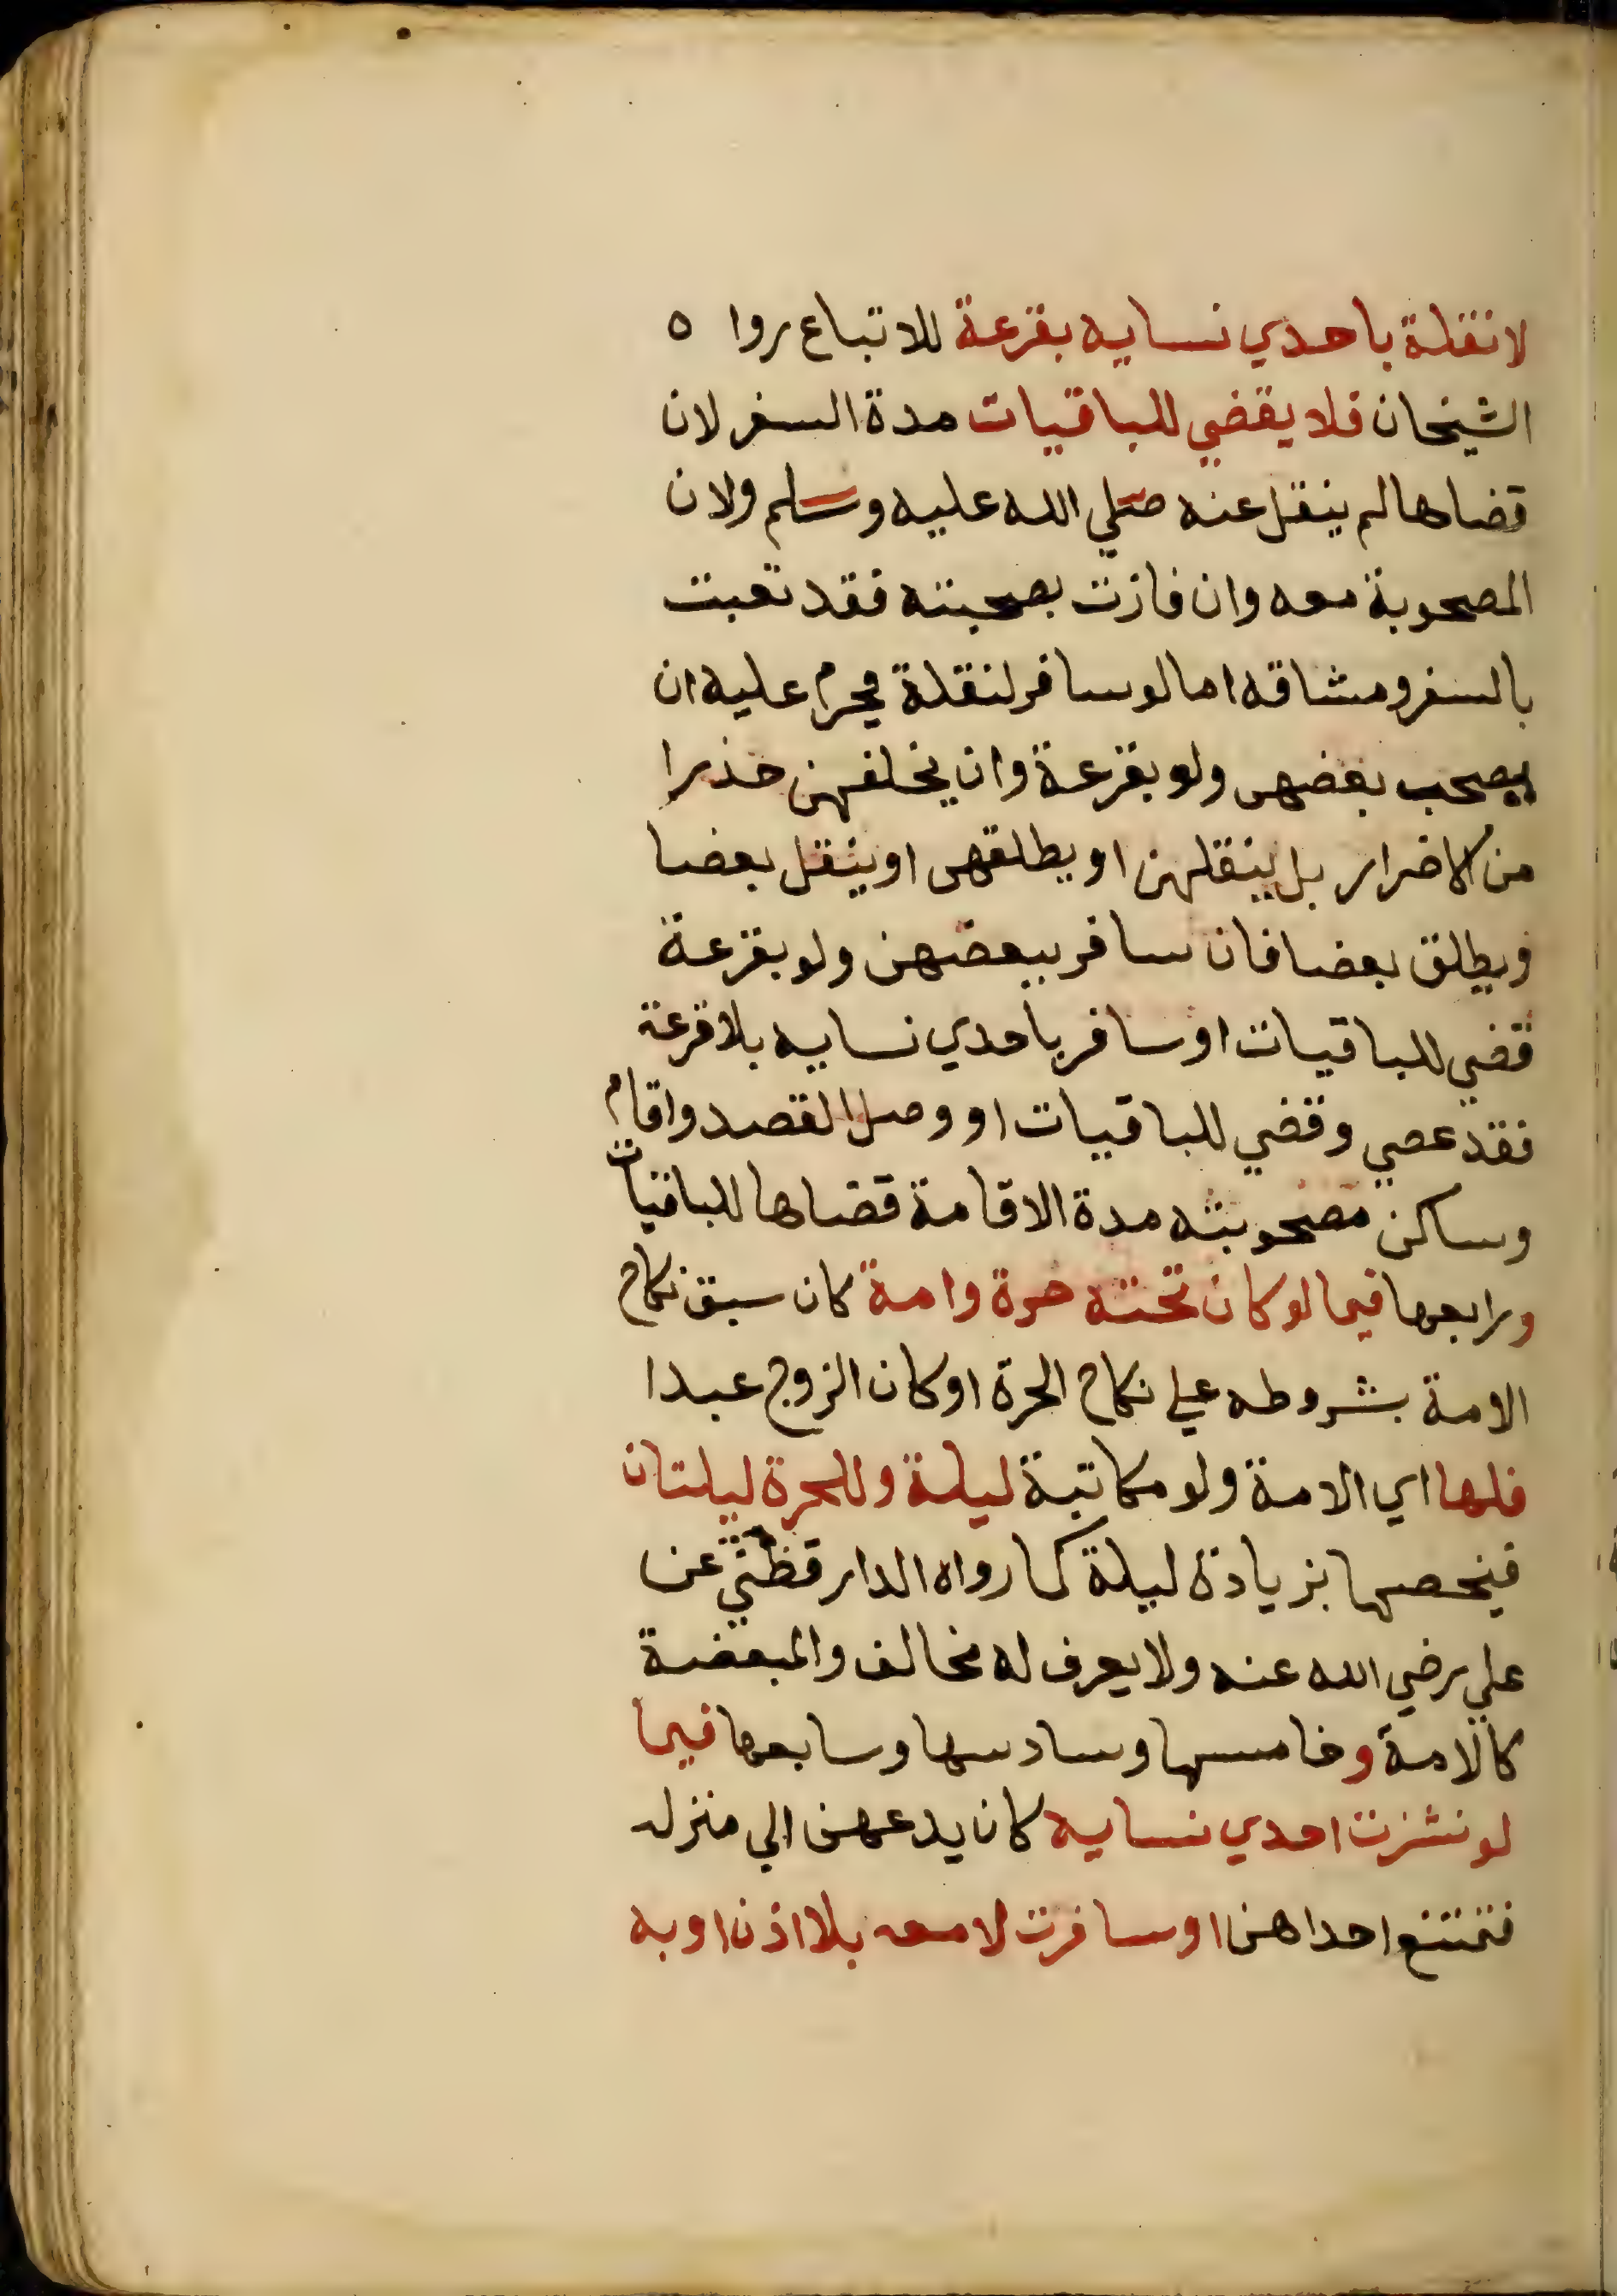 لا نقلة باحدي نسايه بقرعة للاتباع روا ه
الشيخان فلا يقضي للباقيات مدة السفر لان
قضاها لم ينقل عنه صلي الله عليه وسلم ولان
المصحوبة معه وان فازت بصحبته فقد تعبت
بالسفر ومشاقه اما لو سافر لنقلة فيحرم عليه ان
يصحب بعضهن ولو بقرعة وان يخلفهن حذرا
من الاضرار بل ينقلهن او يطلقهن او ينقل بعضا
ويطلق بعضا فان سافر ببعضهن ولو بقرعة
قضي للباقيات او سافر باحدي نسايه بلا قرعة
فقد عصي وقضي للباقيات او وصل القصد واقام
وساكن مصحوبته مدة الاقامة قضاها للباقيات
ورابعها فيما لو كان تحته حرة وامة كان سبق نكاح
الامة بشروطه علي نكاح الحرة او كان الزوج عبدا
فلها اي الامة ولو مكاتبة ليلة وللحرة ليلتان
فيخصها بزيادة ليلة كما رواه الدار قطني عن
علي رضي الله عنه ولا يعرف له مخالف والمبعضة
كالامة وخامسها وسادسها وسابعها فيما
لو نشزت احدي نسايه كان يدعهن الي منزله
فتمتنع احداهن او سافرت لا معه بلا اذن او به